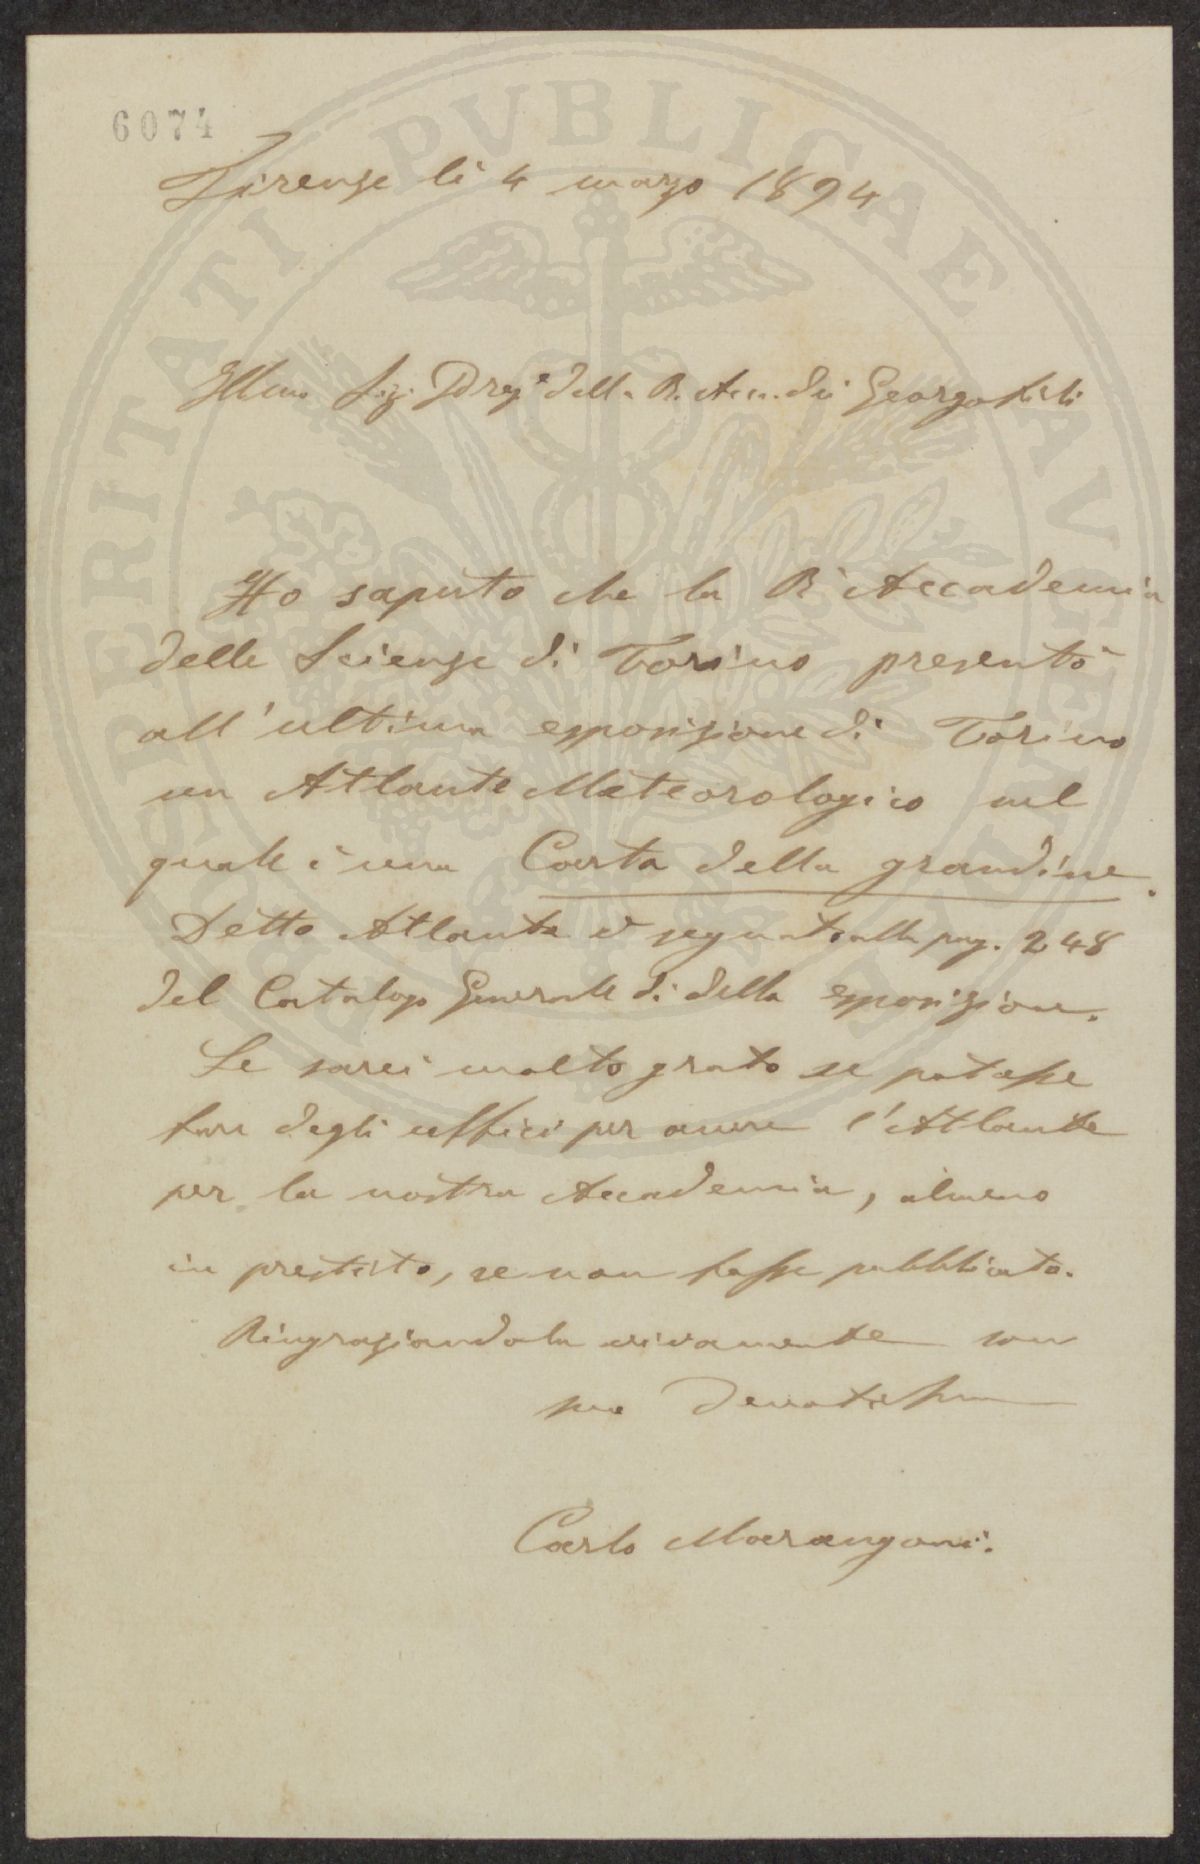 6074
Firenze li 4 marzo 1894
Illmo Sig. Pres.e della R. Acc. dei Georgofili
Ho saputo che la R. Accademia
delle Scienze di Torino presentò
all'ultima esposizione di Torino
un Atlante Meteorologico nel
quale è una Carta della grandine.
Detto Atlante è segnato alla pag. 248
del Catalogo Generale di della esposizione.
Le sarei molto grato se potesse
fare degli uffici per avere l'Atlante
per la nostra Accademia, almeno
in prestito, se non fosse pubblicato.
Ringraziandola vivamente son
suo Devotissmo
Carlo Marangoni.
PROSPERITATI PVBLICAE AVGENDAE